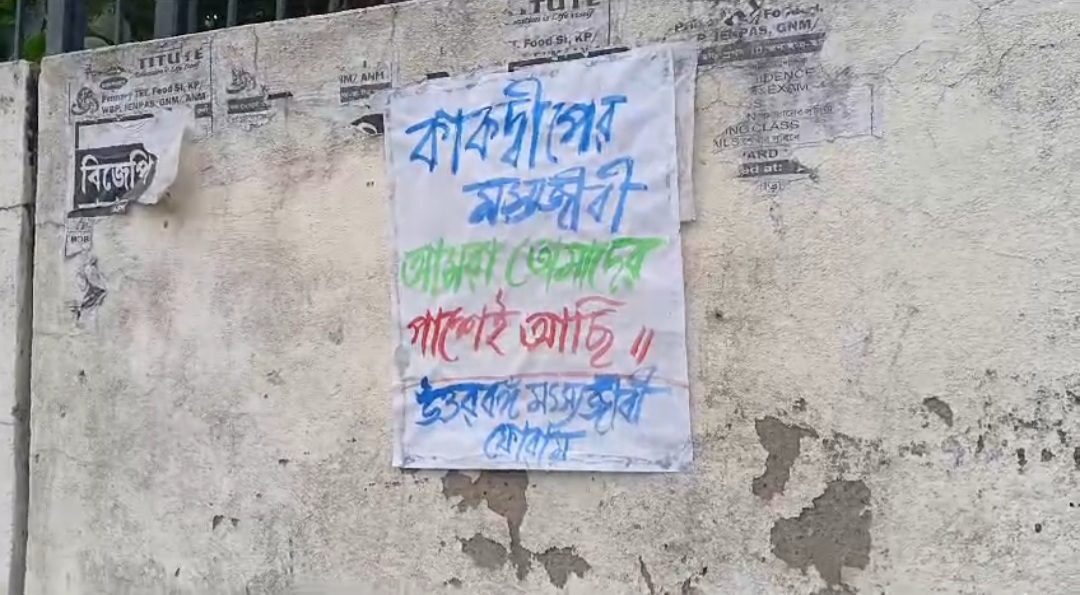 TITUTE
Pennary TRT, Food SI, KP/
WBP, JENPAS, GNM/ ANM
বিজেপি
IM/ ANM
TITUTE
T. Food SI, KP/
JENPAS, GNM/
IDENCE
EXAM
ING CLASS
ARD
কাকদ্বীপের
মৎস্যজীবী
আমরা তোমাদের
পাশেই আছি ॥
উত্তরবঙ্গ মৎস্যজীবী
ফোরাম